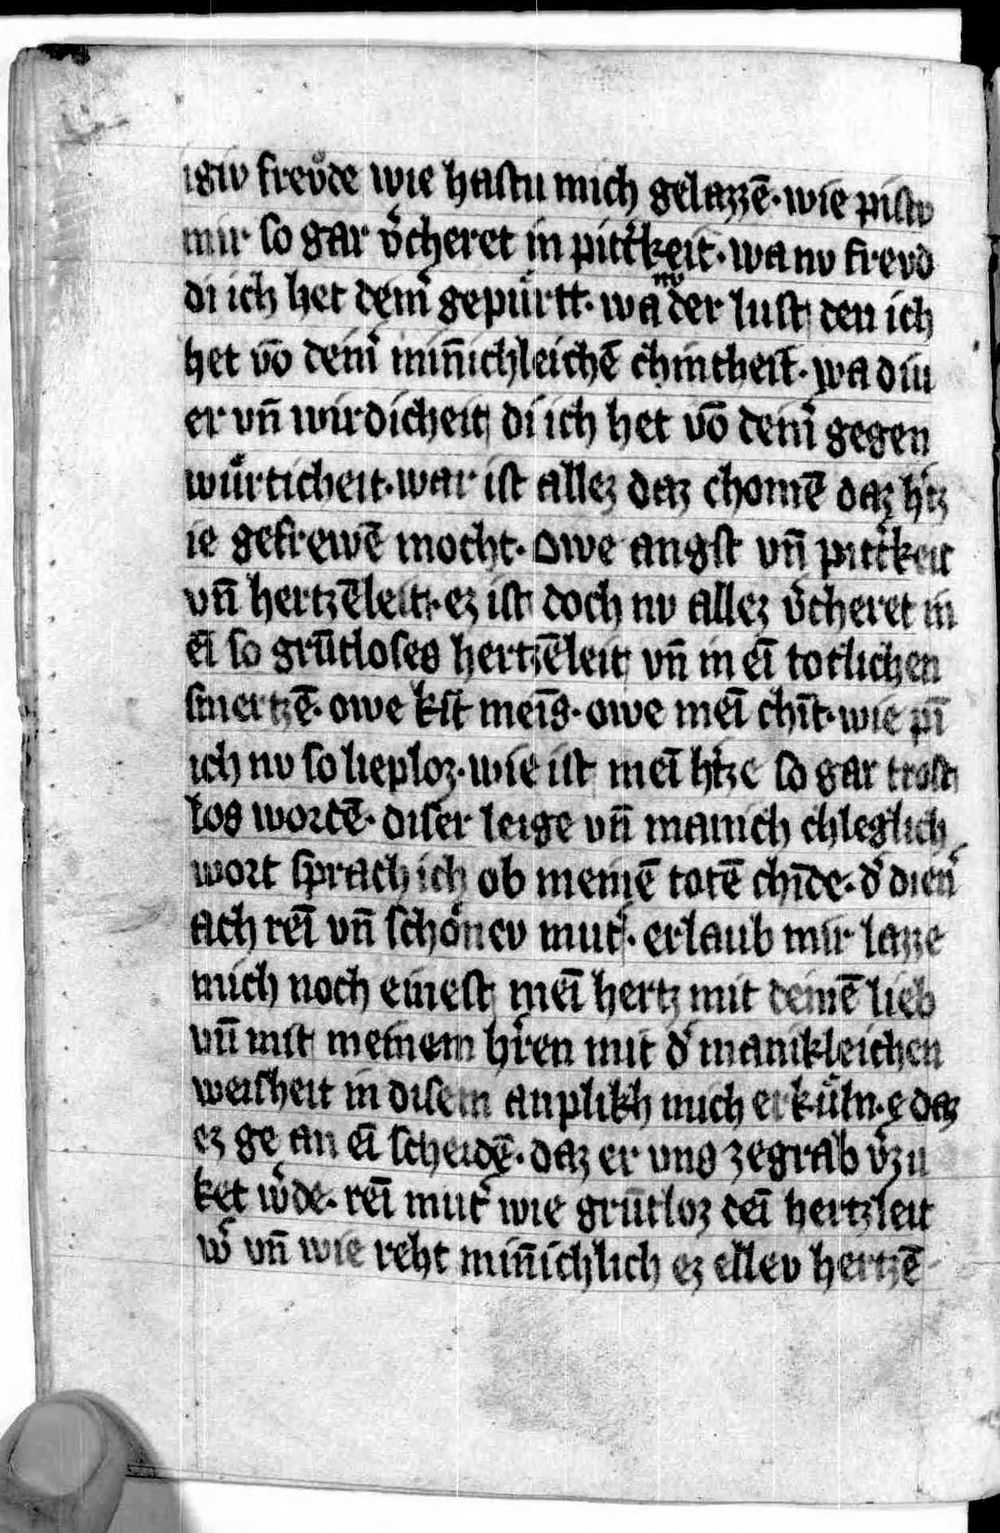 igiv frevͦde wie hastu mich gelazzē· wie pistv
mir so gar v̓cheret in pitt̓keit· wa nv frevd
di ich het dein̓ gepuͤrtt· wa nv der lust den ich
het vō dein̓ min̄ichleichē chintheit· wa diu
er vn̄ wirdicheit di ich het vō dein̓ gegen
wuͤrticheit· war ist allez daz chomē daz h̓tz
ie gefrewē mocht· owe angst vn̄ pitt̓keit
vn̄ hertzēleit· ez ist doch nv allez v̓cheret in
eī so grūtloses hertzēleit vn̄ in eī totlichen
smertzē· owe kīt meīs· owe meī chīt· wie pī
ich nv so lieploz· wie ist meī h̓tze so gar trost
los wordē· diser leige vn̄ manich chleglich
wort sprach ich ob meinē totē chīde· d̓ dien̓
ach reī vn̄ schoͤnev mut̓· erlaub mir lazze
mich noch einest meī hertz mit deinē lieb
vn̄ mit meinem h̓ren mit d̓ manikleichen
weisheit in disem anplikh mich erkuͤln· e daz
ez ge an eī scheidē· daz er vns ze grab v̓zu
ket w̓de· reī mut̓ wie grūtloz deī hertzleit
w̓ vn̄ wie reht min̄ichlich ez ellev hertzē